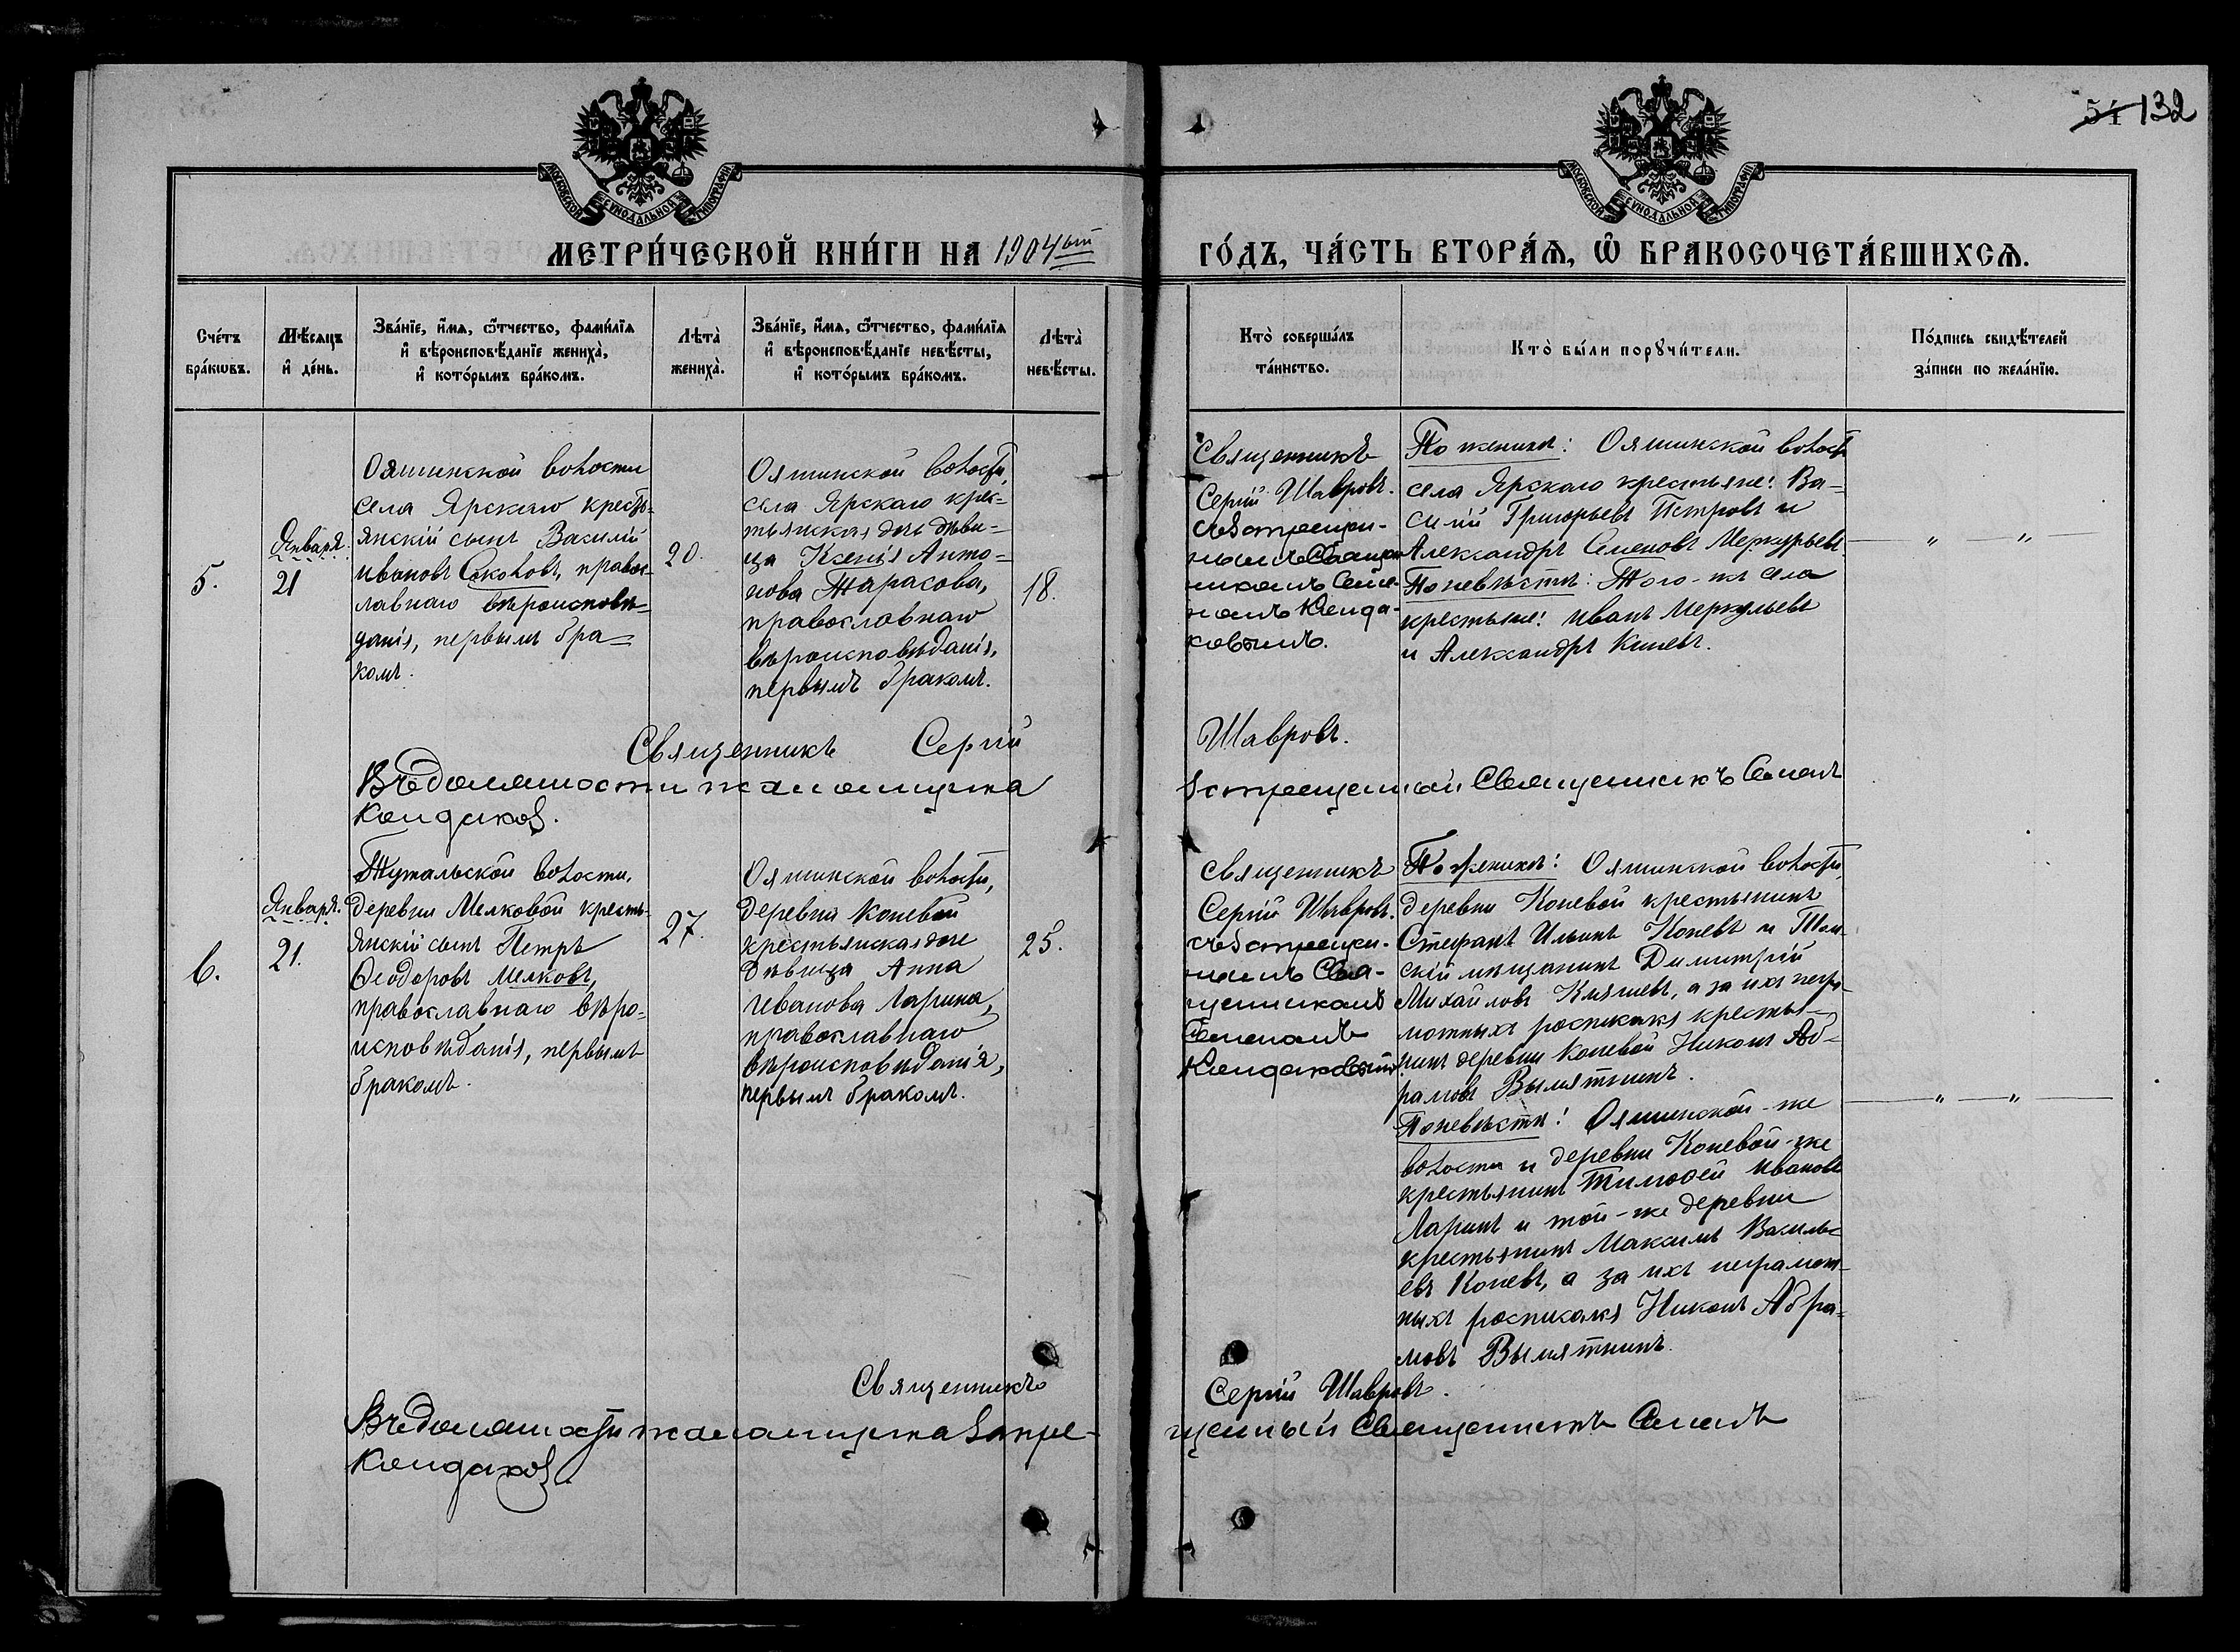 54 132
МОСКОВСКОЙ СУНОДАЛЬНОЙ ТИПОГРАФІИ
МОСКОВСКОЙ СУНОДАЛЬНОЙ ТИПОГРАФІИ
МЕТРИ́ЧЕСКОЙ КНИ́ГИ НА 1904ый ГО́ДЪ, ЧА́СТЬ ВТОРА́Ѧ, Ѽ БРАКОСОЧЕТА́ВШИХСѦ.
Сче́тъ
бра́кѡвъ.
Мѣ́сяцъ
и҆ де́нь.
Зва́нїе, и҆́мѧ, ѻ҆́тчество, фами́лїѧ
и҆ вѣроисповѣ́данїе жениха̀,
и҆ кото́рымъ бра́комъ.
Лѣта̀
жениха̀.
Зва́нїе, и҆́мѧ, ѻ҆́тчество, фами́лїѧ
и҆ вѣроисповѣ́данїе невѣ́сты,
и҆ кото́рымъ бра́комъ.
Лѣта̀
невѣ́сты.
Кто̀ соверша́лъ
та́инство.
Кто̀ бы́ли порꙋчи́тели.
По́дпись свидѣ́телей
за́писи по жела́нїю.
5.
Января.
21
Ояшинской волости
села Ярскаго кресть-
янскій сынъ Василій
Ивановъ Соколовъ, правос-
лавнаго вѣроисповѣ-
данія, первымъ бра-
комъ.
20.
Ояшинской волости,
села Ярскаго крес-
тьянская дочь дѣви-
ца Ксенія Анто-
нова Тарасова,
православнаго
вѣроисповѣданія,
первымъ бракомъ.
18.
Священникъ
Сергій Шавровъ.
нымъ Священ-
никомъ Семе-
номъ Конда-
ковымъ.
По женихѣ: Ояшинской волости
села Ярскаго крестьяне: Ва-
силій Григорьевъ Петровъ и
Александръ Семеновъ Меркурьевъ
По невѣстѣ: Того-же села
крестьяне: Иванъ Меркульевъ
и Александръ
— " — " —
Священникъ Сергій Шавровъ.
Въ должности псаломщика запрещенный Священникъ Семенъ
Кондаковъ.
6.
Января.
21.
Тутальской волости,
деревни Мелковой кресть-
янскій сынъ Петръ
Ѳеодоровъ Мелковъ,
православнаго вѣро-
исповѣданія, первымъ
бракомъ.
27.
Ояшинской волости,
деревни Коневой
крестьянская дочь
дѣвица Анна
Иванова Ларина,
православнаго
вѣроисповѣданія,
первымъ бракомъ.
25.
Священникъ
Сергій Шавровъ.
нымъ Свя-
щенникомъ
Семеномъ
Кондаковымъ
По женихѣ: Ояшинской волости,
деревни Коневой крестьянинъ
Стефанъ Ильинъ Коневъ и Том-
скій мѣщанинъ Димитрій
Михайловъ а за ихъ негра-
мотныхъ росписался кресть-
нинъ деревни Коневой Никонъ Аб-
рамовъ Вымятнинъ.
По невѣстѣ: Ояшинской-же
волости и деревни Коневой-же
крестьянинъ Тимофей Ивановъ
Ларинъ и той-же деревни
крестьянинъ Максимъ Василь-
евъ Коневъ, а за ихъ неграмот-
ныхъ росписался Никонъ Абра-
мовъ Вымятнинъ.
— " — " —
Священникъ Сергій Шавровъ.
Въ должности псаломщика запре-
щенный Священникъ Семенъ
Кондаковъ.